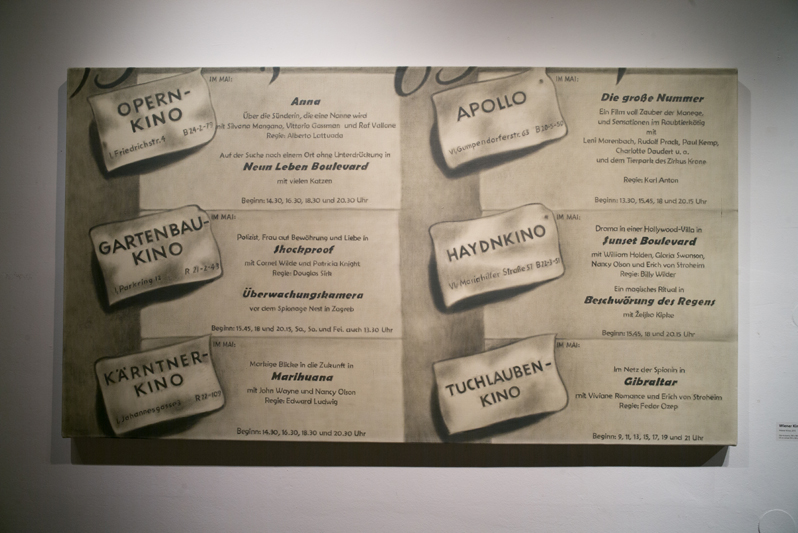 OPERN-
KINO
I, Friedrichstr. 4
IM MAI:
Anna
Über die Sünderin, die eine Nonne wird
mit Silvana Mangano, Vittorio Gassman und Raf Vallone
Regie: Alberto Lattuada
Auf der Suche nach einem Ort ohne Unterdrückung in
Neun Leben Boulevard
mit vielen Katzen
Beginn: 14.30, 16.30, 18.30 und 20.30 Uhr
GARTENBAU-
KINO
I, Parkring
IM MAI:
Polizist, Frau auf Bewährung und Liebe in
Shockproof
mit Cornel Wilde und Patricia Knight
Regie: Douglas Sirk
Überwachungskamera
vor dem Spionage Nest in Zagreb
Beginn: 15.45, 18 und 20.15, Sa., So. und Fei. auch 13.30 Uhr
KÄRNTNER-
KINO
I, Johannesgasse
IM MAI:
Morbige Blicke in die Zukunft in
Marihuana
mit John Wayne und Nancy Olson
Regie: Edward Ludwig
Beginn: 14.30, 16.30, 18.30 und 20.30 Uhr
APOLLO
VI, Gumpendorferstr. 63
IM MAI:
Die große Nummer
Ein Film voll Zauber der Manege,
und Sensationen im Raubtierkäfig
mit
Leni Marenbach, Rudolf Prack, Paul Kemp,
Charlotte Daudert u. a.
und dem Tierpark des Zirkus Krone
Regie: Karl Anton
Beginn: 13.30, 15.45, 18 und 20.15 Uhr
HAYDNKINO
VI, Mariahilfer Straße 57
IM MAI:
Drama in einer Hollywood-Villa in
Sunset Boulevard
mit William Holden, Gloria Swanson,
Nancy Olson und Erich von Stroheim
Regie: Billy Wilder
Ein magisches Ritual in
Beschwörung des Regens
mit Željko Kipke
Beginn: 15.45, 18 und 20.15 Uhr
TUCHLAUBEN-
KINO
IM MAI:
Im Netz der Spionin in
Gibraltar
mit Viviane Romance und Erich von Stroheim
Regie: Fedor Ozep
Beginn: 9, 11, 13, 15, 17, 19 und 21 Uhr